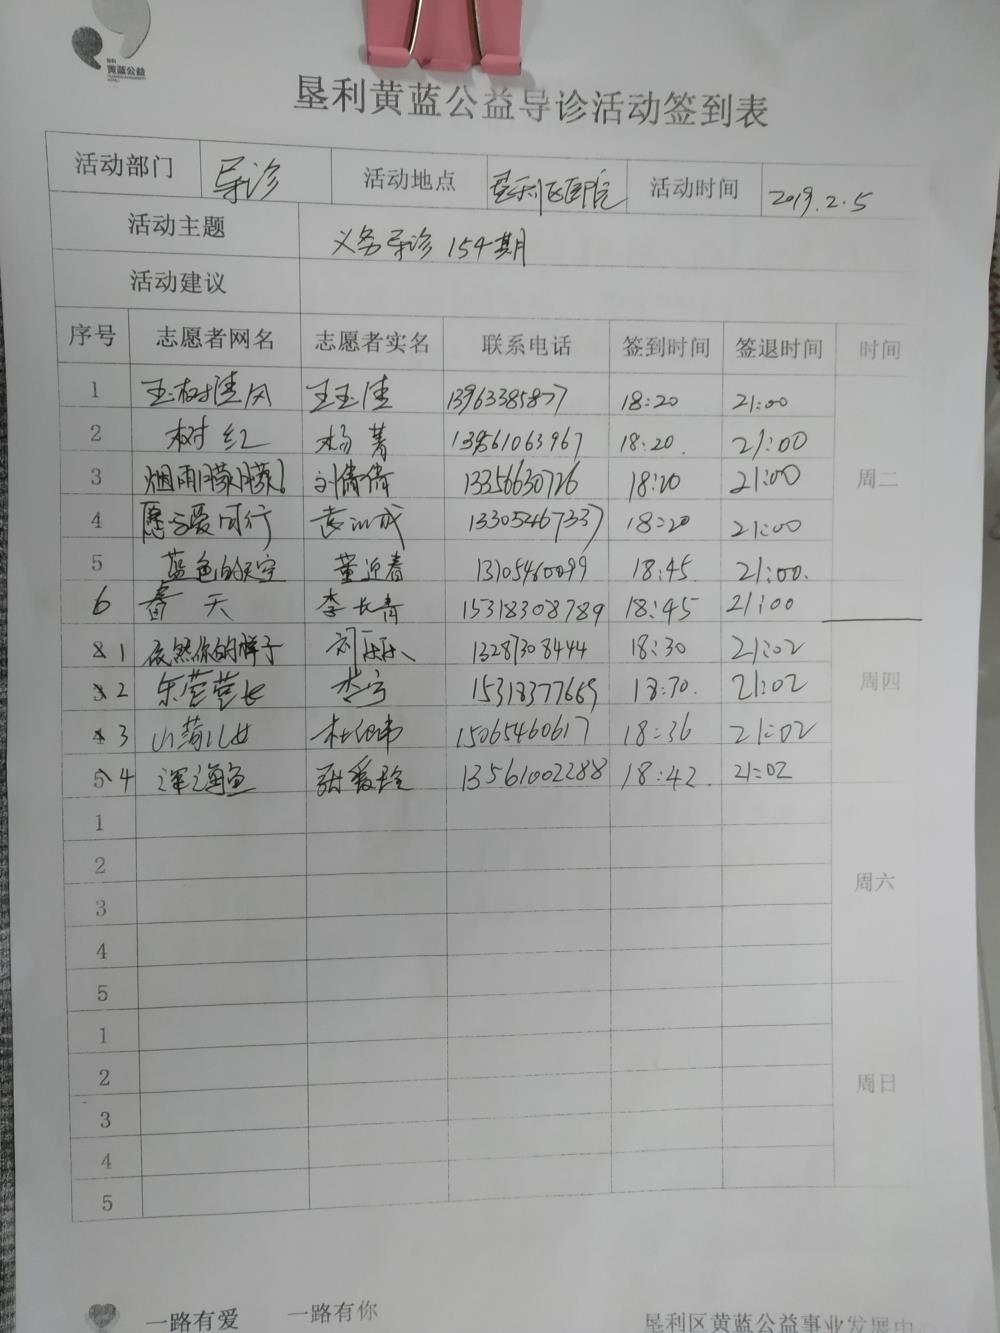 黄蓝公益
垦利黄蓝公益导诊活动签到表
活动部门 导诊 活动地点 垦利区医院 活动时间 2019.2.5
活动主题 义务导诊154期
活动建议
序号 志愿者网名 志愿者实名 联系电话 签到时间 签退时间 时间
1 玉树清风 王玉清 13963385877 18:20 21:00
2 树红 杨菁 13561063967 18:20. 21:00
3 烟雨朦朦 刘倩倩 13356630726 18:20 21:00 周二
4 愿与爱同行 13305467337 18:20 21:00
5 蓝色的天空 董迎春 13105460099 18:45 21:00.
6 春天 李长青 15318308789 18:45 21:00
1 依然你的样子 13287308444 18:30 21:02
2 李宁 15318377669 18:30. 21:02 周四
3 山菊儿女 15065460617 18:36 21:02
5 4 深海鱼 张爱玲 13561002288 18:42. 21:02
1
2
3 周六
4
5
1
2 周日
3
4
5
一路有爱 一路有你 垦利区黄蓝公益事业发展中心